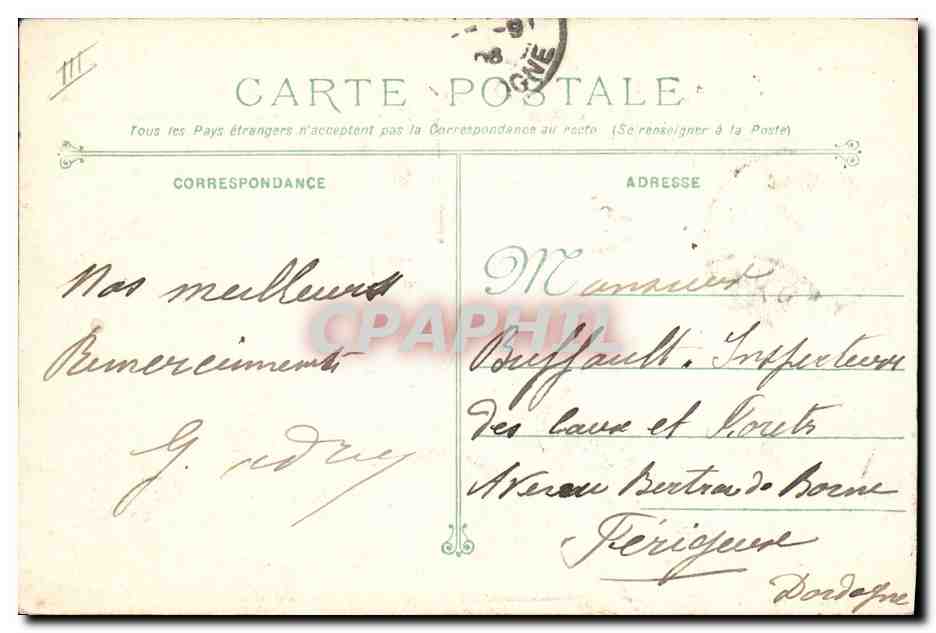 III
-91
08
OGNE
CARTE POSTALE
Tous les Pays étrangers n'acceptent pas la Correspondance au recto (Se renseigner à la Poste)
CORRESPONDANCE
Nos meilleurs
Remerciements
G.
ADRESSE
Monsieur
Buffault. Inspecteur
des Eaux et Forets
Avenue Bertran de Borne
Périgueux
Dordogne
CPAPHIL